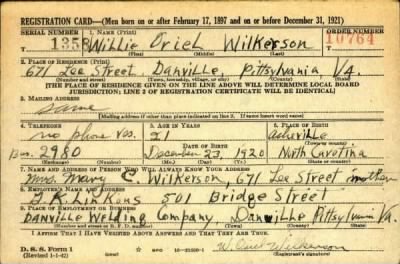 REGISTRATION CARD—(Men born on or after February 17, 1897 and on or before December 31, 1921)
SERIAL NUMBER 1. NAME (Print) ORDER NUMBER
1358 Willie Oriel Wilkerson 10764
(First) (Middle) (Last)
2. PLACE OF RESIDENCE (Print)
671 Lee Street, Danville, Pittsylvania VA.
(Number and street) (Town, township, village, or city) (County) (State)
[THE PLACE OF RESIDENCE GIVEN ON THE LINE ABOVE WILL DETERMINE LOCAL BOARD
JURISDICTION; LINE 2 OF REGISTRATION CERTIFICATE WILL BE IDENTICAL]
3. MAILING ADDRESS
Same
(Mailing address if other than place indicated on line 2. If same insert word same)
4. TELEPHONE 5. AGE IN YEARS 6. PLACE OF BIRTH
no phone res. 21 Asheville
DATE OF BIRTH (Town or county)
Bus. 2980 December 23, 1920 North Carolina
(Exchange) (Number) (Mo.) (Day) (Yr.) (State or country)
7. NAME AND ADDRESS OF PERSON WHO WILL ALWAYS KNOW YOUR ADDRESS
Mrs. Mary C. Wilkerson, 671 Lee Street mother
8. EMPLOYER'S NAME AND ADDRESS
J. K. Linkous 501 Bridge Street
9. PLACE OF EMPLOYMENT OR BUSINESS
Danville Welding Company, Danville Pittsylvania Va.
(Number and street or R. F. D. number) (Town) (County) (State)
I AFFIRM THAT I HAVE VERIFIED ABOVE ANSWERS AND THAT THEY ARE TRUE.
D. S. S. Form 1
(Revised 1-1-42) (over) W. Oriel Wilkerson
(Registrant's signature)